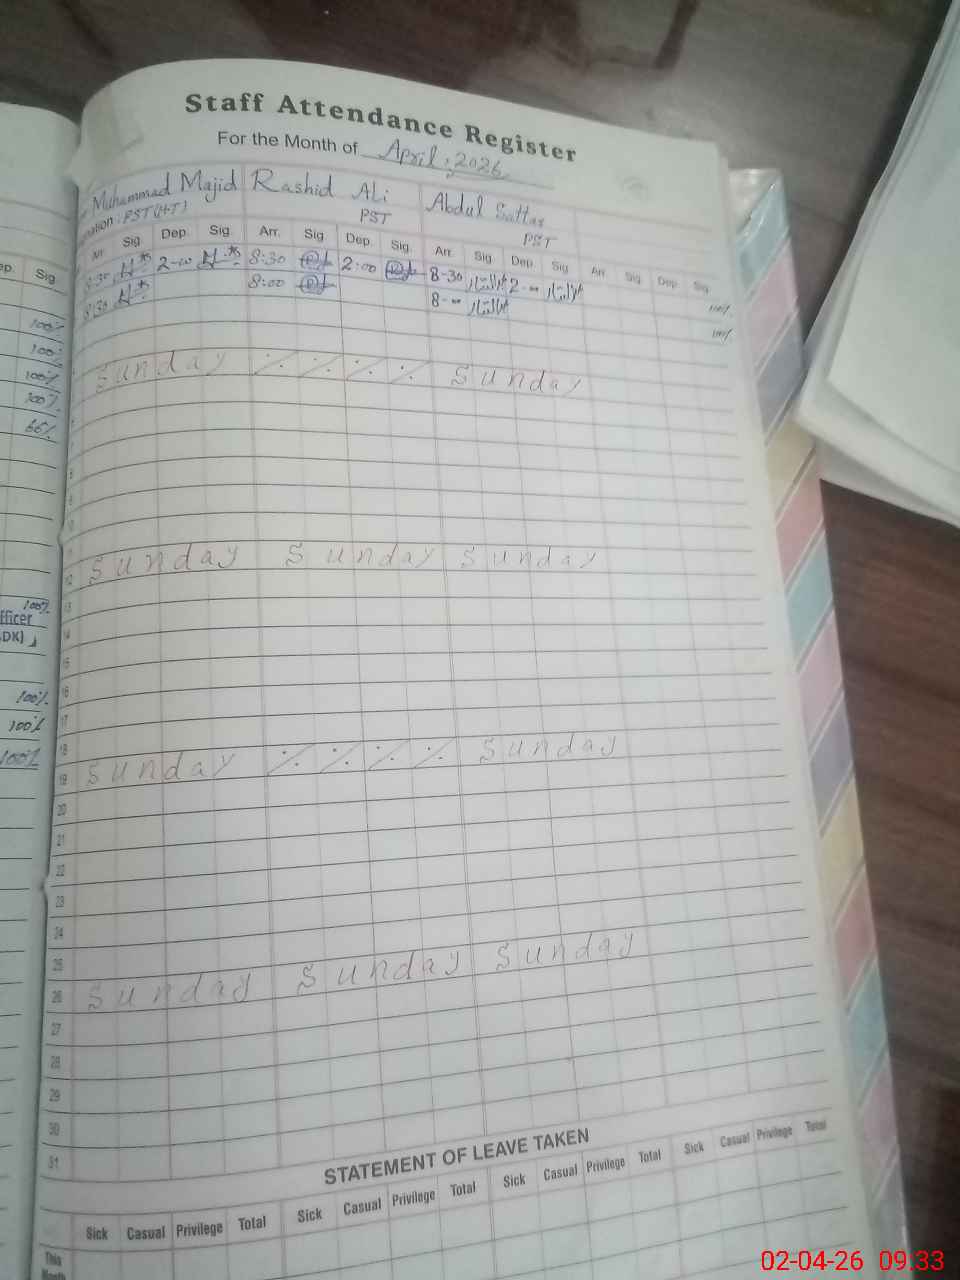 Staff Attendance Register
For the Month of April, 2026
Muhammad Majid Rashid Ali Abdul Sattar
PST (HT) PST PST
Arr. Sig Dep. Sig. Arr. Sig Dep. Sig. Arr. Sig Dep. Sig Arr. Sig Dep. Sig.
8:30 2-00 8:30 2:00 8-30 عبدالستار 2-00 عبدالستار 100%
8:30 8:00 8-00 عبدالستار 100%
Sunday ٪ ٪ ٪ ٪ Sunday
7
8
9
10
11
12 Sunday Sunday Sunday
13
14
15
16
17
18
19 Sunday ٪ ٪ ٪ ٪ Sunday
20
21
22
23
24
25
26 Sunday Sunday Sunday
27
28
29
30
31
STATEMENT OF LEAVE TAKEN
Sick Casual Privilege Total Sick Casual Privilege Total Sick Casual Privilege Total Sick Casual Privilege Total
This
Month
Sig
100%
100%
100%
100%
66%
100%
100%
100%
100%
02-04-26 09.33